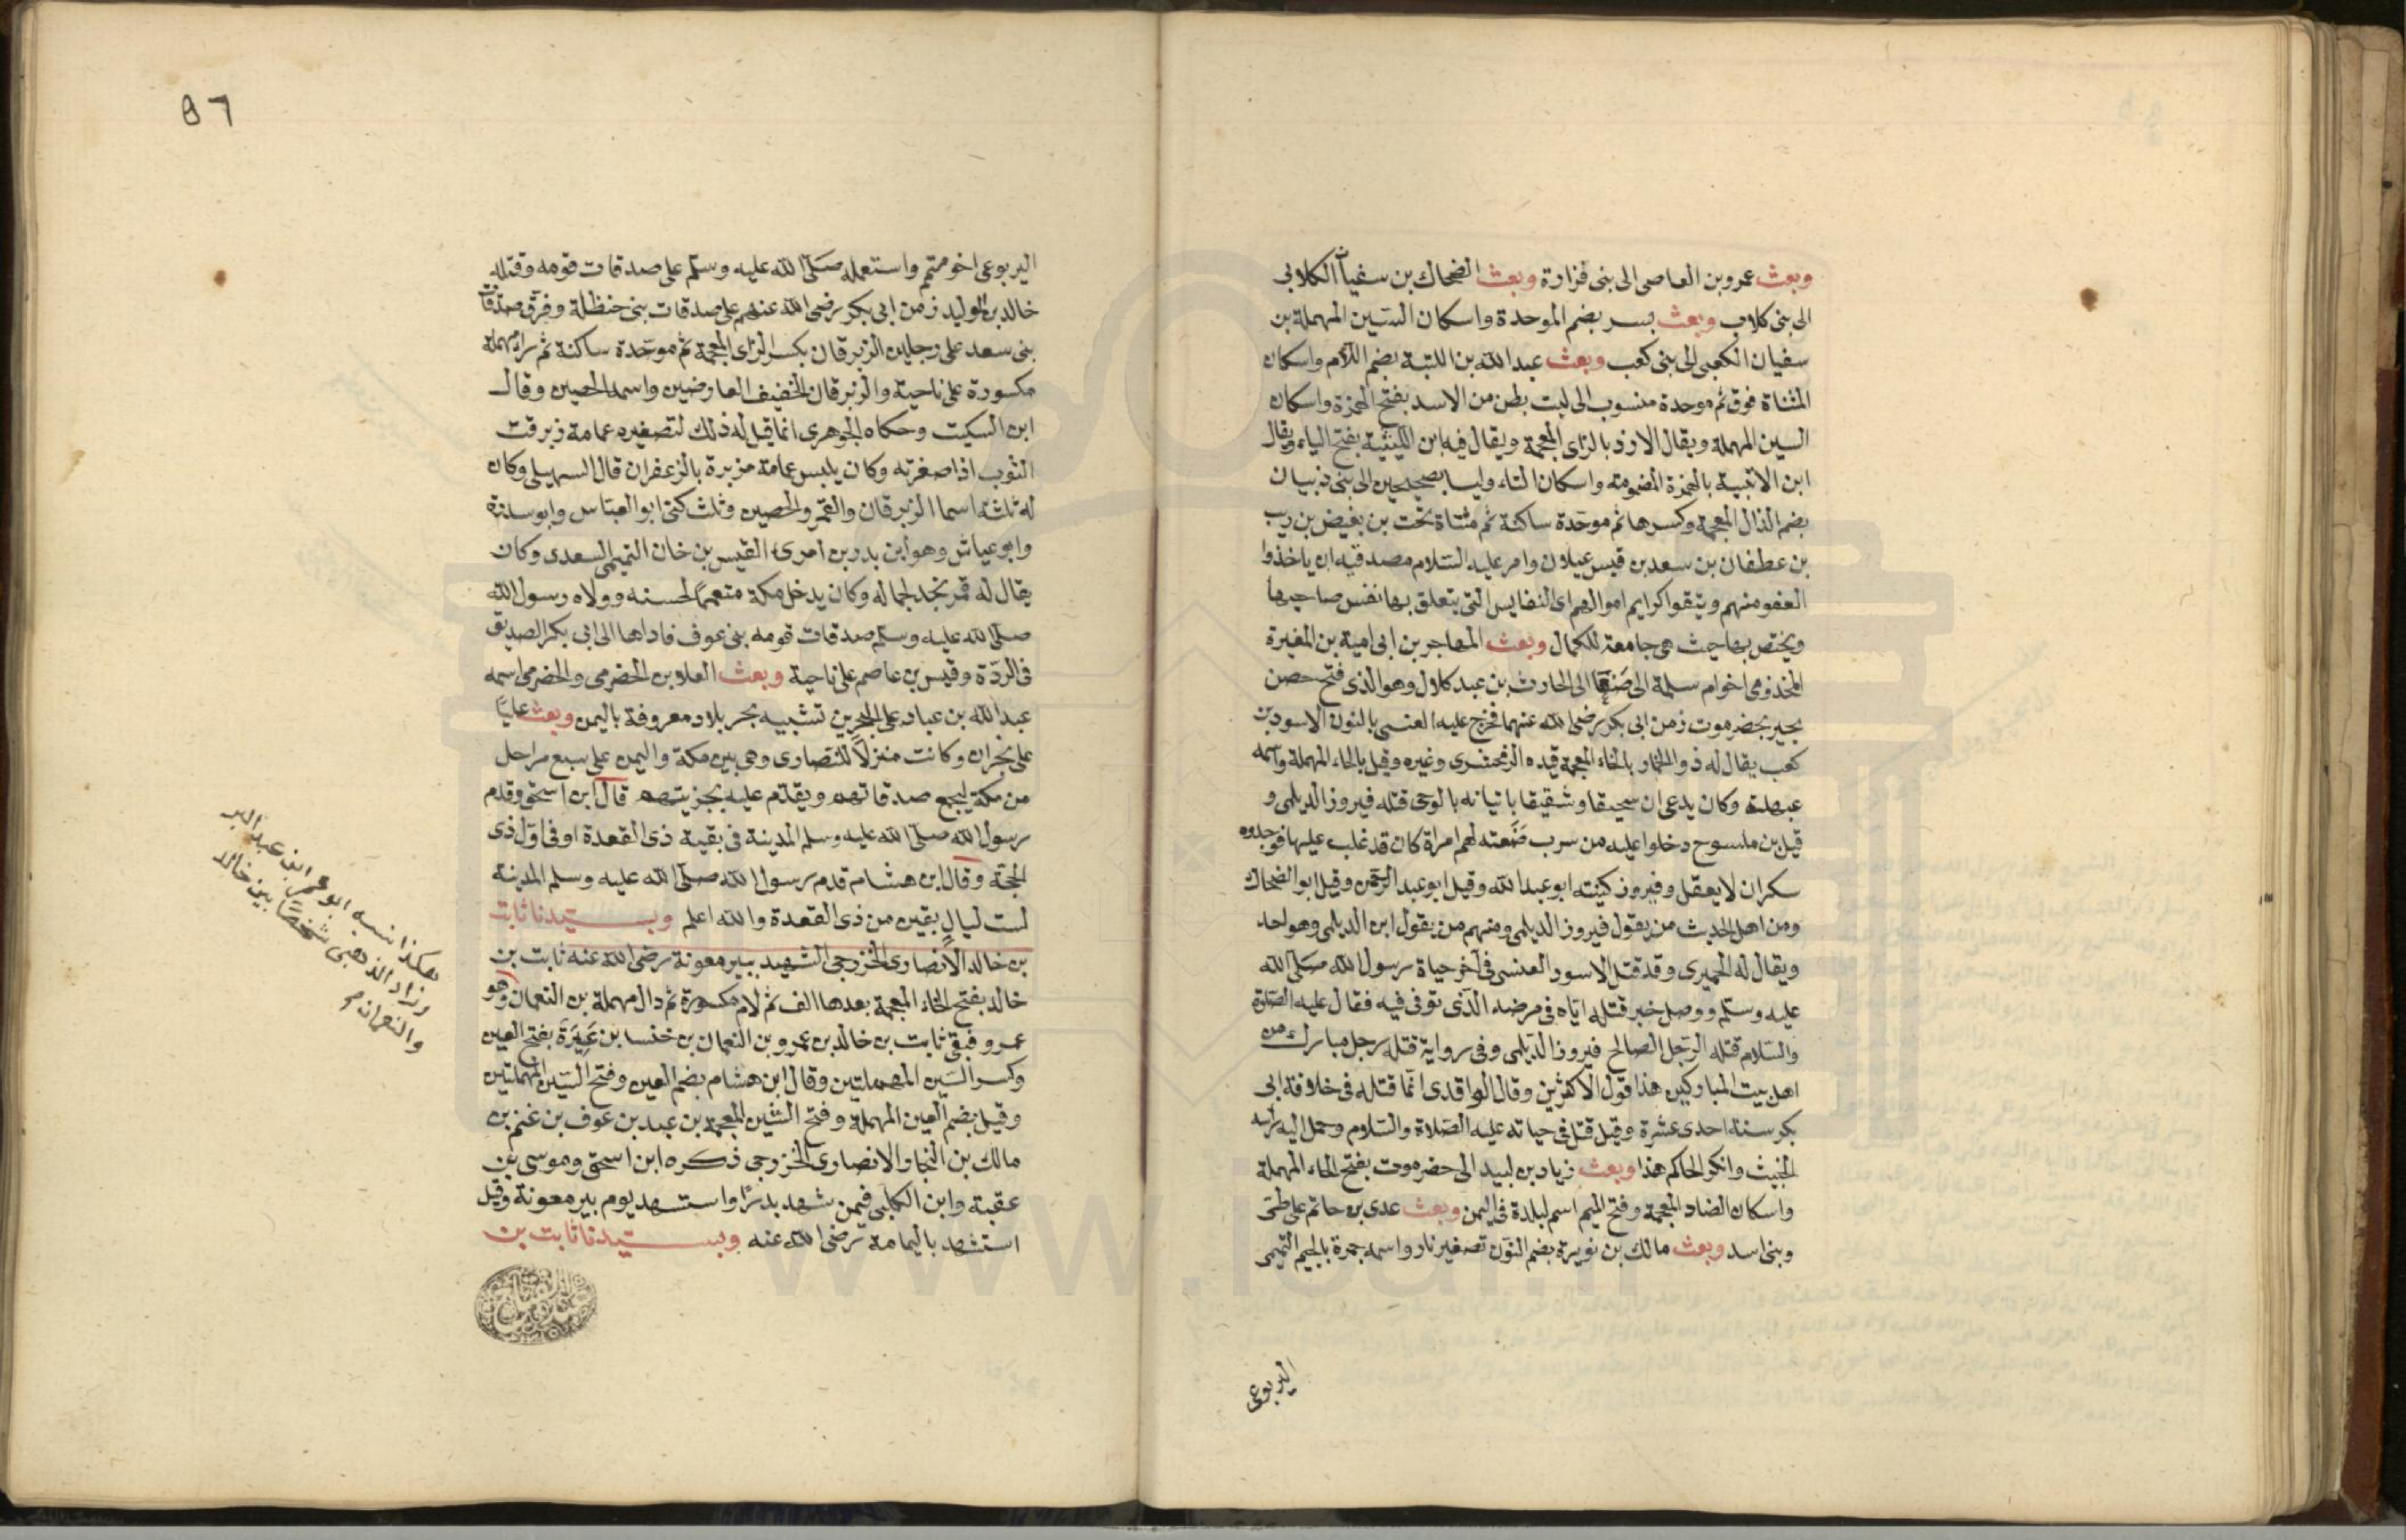 وبعث عمرو بن العاصى الى بنى فزارة وبعث الضحاك بن سفيان الكلابى
الى بنى كلاب وبعث بسر بضم الموحدة واسكان السين المهملة بن
سفيان الكعبى الى بنى كعب وبعث عبد الله بن اللتبة بضم اللام واسكان
المثناة فوق ثم موحدة منسوب الى لبت بطن من الاسد بفتح الهمزة واسكان
السين المهملة ويقال الازد بالزاى المعجمة ويقال فيه ابن اللتبية بفتح الياء ويقال
ابن الاتبية بالهمزة المضمومة واسكان التاء وليسا بصحيحين الى بنى ذبيان
بضم الذال المعجمة وكسرها ثم موحدة ساكنة ثم مثناة تحت بن بغيض بن ريب
بن عطفان بن سعد بن قيس عيلان وامر عليه السلام مصدقيه ان ياخذوا
العفو منهم ويتقوا كرايم اموالهم اى النفايس التى يتعلق بها نفس صاحبها
ويختص بها حيث هى جامعة للكمال وبعث المهاجر بن ابى امية بن المغيرة
المخذومى اخوام سلمة الى صنعا الى الحارث بن عبد كلال وهو الذى فتح حصن
بجير بحضرموت زمن ابى بكر رضى الله عنهما فخرج عليه العنسى بالنون الاسود بن
كعب يقال له ذو الخمار بالخاء المعجمة قيده الزمخشرى وغيره وقيل بالحاء المهملة واسمه
عبهلة وكان يدعى ان سحيقا وشقيقا ياتيانه بالوحى قتله فيروز الديلمى و
قيل بن ملسوح دخلوا عليه من سرب صنعته لهم امراة كان قد غلب عليها فوجدوه
سكران لا يعقل وفيروز كنيته ابو عبد الله وقيل ابو عبد الرحمن وقيل ابو الضحاك
ومن اهل الحديث من يقول فيروز الديلمى ومنهم من يقول ابن الديلمى وهو واحد
ويقال له الحميرى وقد قتل الاسود العنسى فى آخر حياة رسول الله صلى الله
عليه وسلم ووصل خبر قتله اياه فى مرضه الذى توفى فيه فقال عليه الصلاة
والسلام قتله الرجل الصالح فيروز الديلمى وفى رواية قتله رجل مبارك من
اهل بيت المباركين هذا قول الاكثرين وقال الواقدى انما قتله فى خلافة ابى
بكر سنة احدى عشرة وقيل قتل فى حياته عليه الصلاة والسلام وحمل اليه رأسه
الخبيث وانكر الحاكم هذا وبعث زياد بن لبيد الى حضرموت بفتح الحاء المهملة
واسكان الضاد المعجمة وفتح الميم اسم لبلدة فى اليمن وبعث عدى بن حاتم على طى
وبنى اسد وبعث مالك بن نويرة بضم النون تصغير نار واسمه جمرة بالجيم التميمى
اليربوعى
٥٦
اليربوعى اخو متمم واستعمله صلى الله عليه وسلم على صدقات قومه وقتله
خالد بن الوليد زمن ابى بكر رضى الله عنهم على صدقات بنى حنظلة وفرق صدقات
بنى سعد على رجلين الزبرقان بكسر الزاى المعجمة ثم موحدة ساكنة ثم راء مهملة
مكسورة على ناحية والزبرقان الخفيف العارضين واسمه الحصين وقال
ابن السكيت وحكاه الجوهرى انما قيل له ذلك لتصفيره عمامة زبرقت
الثوب اذا صفرته وكان يلبس عمامة مزبرة بالزعفران قال السهيلى وكان
له ثلثة اسما الزبرقان والقمر والحصين وثلث كنى ابو العباس وابو سدرة
وابو عياش وهو ابن بدر بن امرى القيس بن خان التميمى السعدى وكان
يقال له قمر نجد لجماله وكان يدخل مكة متعمما لحسنه وولاه رسول الله
صلى الله عليه وسلم صدقات قومه بنى عوف فاداها الى ابى بكر الصديق
فى الردة وقيس بن عاصم على ناحية وبعث العلا بن الحضرمى والحضرمى اسمه
عبد الله بن عباد على البحرين تشبيه بحر بلاد معروفة باليمن وبعث عليا
على نجران وكانت منزلا للنصارى وهى بين مكة واليمن على سبع مراحل
من مكة ليجمع صدقاتهم ويقدم عليه بجزيتهم قال ابن اسحق وقدم
رسول الله صلى الله عليه وسلم المدينة فى بقية ذى القعدة او فى اول ذى
الحجة وقال ابن هشام قدم رسول الله صلى الله عليه وسلم المدينة
لست ليال بقين من ذى القعدة والله اعلم وبسيدنا ثابت
بن خالد الانصارى الخزرجى الشهيد ببير معونة رضى الله عنه ثابت بن
خالد بفتح الخاء المعجمة بعدها الف ثم لام مكسورة ثم دال مهملة بن النعمان وهو
عمرو فبقى ثابت بن خالد بن عمرو بن النعمان بن خنسا بن عسيرة بفتح العين
وكسر السين المهملتين وقال ابن هشام بضم العين وفتح السين المهملتين
وقيل بضم العين المهملة وفتح الشين المعجمة بن عبد بن عوف بن غنم بن
مالك بن النجار الانصارى الخزرجى ذكره ابن اسحق وموسى بن
عقبة وابن الكلبى فيمن شهد بدرا واستشهد يوم بير معونة وقيل
استشهد باليمامة رضى الله عنه وبسيدنا ثابت بن
هكذا نسبه ابو عمر ابن عبد البر
وزاد الذهبى شخصا بين خالد
والنعمان